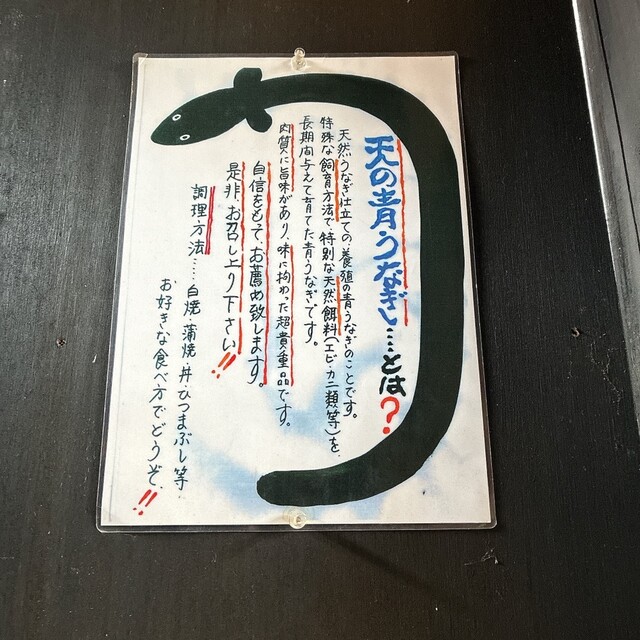 天の青うなぎ‥‥とは?
天然うなぎ仕立ての養殖の青うなぎのことです。
特殊な飼育方法で、特別な天然餌料(エビ・カニ類等)を、
長期間与えて育てた青うなぎです。
肉質に旨味があり、味に拘わった超貴重品です。
自信をもって、お薦め致します。
是非、お召し上り下さい!!
調理方法‥‥白焼・蒲焼・丼・ひつまぶし等
お好きな食べ方でどうぞ!!